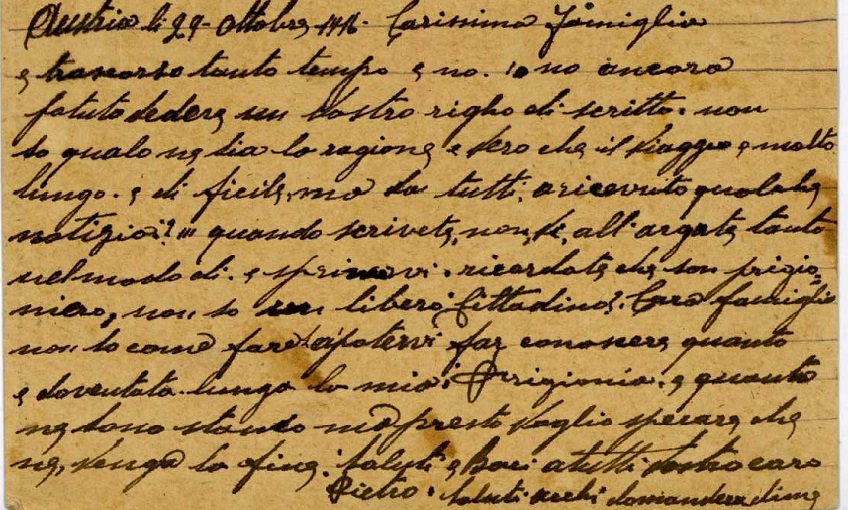 Austria li 29 ottobre 1916. Carissima Famiglia
e trascorso tanto tempo e no. sono ancora
potuto vedere un vostro righo di scritto. non
so quale ne sia la ragione e vero che il viaggio e molto
lungo. e di ficile, ma da tutti, a ricevuto qualche
notizia? quando scrivete, non, ve, all'argate tanto
nel modo di. e sprimervi. ricordate che son prigio-
niero, non so un libero Cittadino? Cara famiglia
non so come fare apotervi far conoscere quanto
e doventata lunga la mia Prigionia. e quanto
ne sono stanco ma presto voglio sperare che
ne, venga la fine. Saluti e Baci a tutti vostro caro
Pietro. Saluti acchi domandera di me